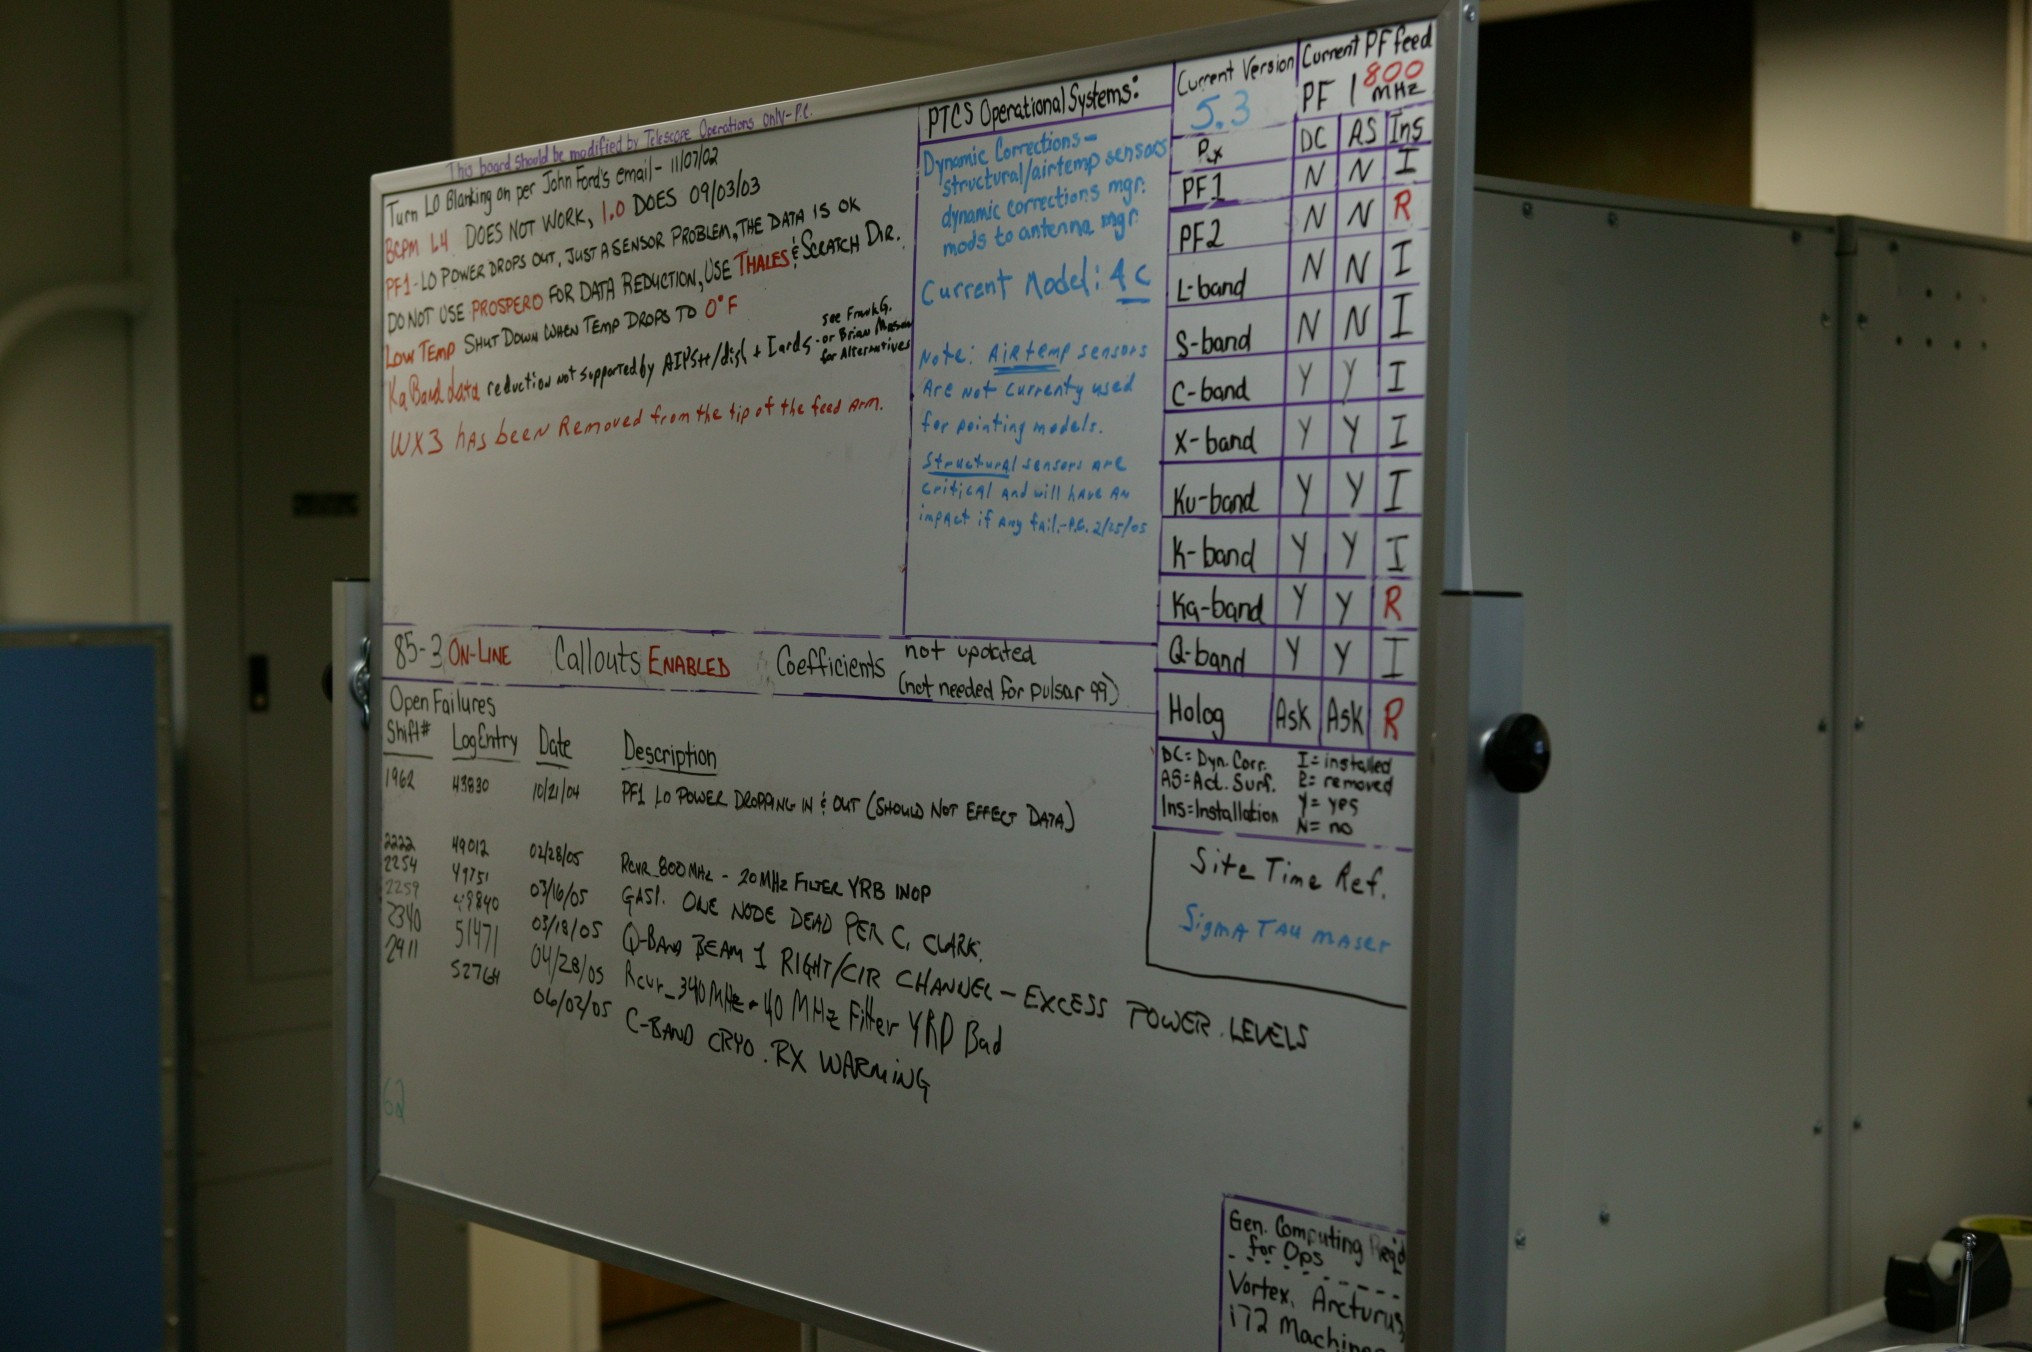 This board should be modified by Telescope Operations only - P.C.
Turn LO Blanking on per John Ford's email - 11/07/02
BCPM L4 DOES NOT WORK, 1.0 DOES 09/03/03
PF1 - LO POWER DROPS OUT, JUST A SENSOR PROBLEM, THE DATA IS OK
DO NOT USE PROSPERO FOR DATA REDUCTION, USE THALES & SCRATCH DIR.
LOW TEMP SHUT DOWN WHEN TEMP DROPS TO 0°F
Ka Band data reduction not supported by AIPS++/dish + Iards - see Frank G.
or Brian Mason
for Alternatives
WX3 has been Removed from the tip of the feed arm.
PTCS Operational Systems:
Dynamic Corrections -
structural/airtemp sensors
dynamic corrections mgr.
mods to antenna mgr.
Current Model: 4c
Note: Airtemp sensors
Are not currenty used
for pointing models.
Structural sensors are
critical and will have an
impact if any fail. - P.C. 2/25/05
Current Version
5.3
Current PF feed
PF 1 800 MHz
Rx DC AS Ins
PF1 N N I
PF2 N N R
L-band N N I
S-band N N I
C-band Y Y I
X-band Y Y I
Ku-band Y Y I
K-band Y Y I
Ka-band Y Y R
Q-band Y Y I
Holog Ask Ask R
DC = Dyn. Corr. I = installed
AS = Act. Surf. R = removed
Ins = Installation Y = yes
N = no
85-3 ON-LINE Callouts ENABLED Coefficients not updated
(not needed for pulsar 99)
Open Failures
Shift# Log Entry Date Description
1962 43830 10/21/04 PF1 LO POWER DROPPING IN & OUT (SHOULD NOT EFFECT DATA)
2222 49012 02/28/05 Rcvr_800MHz - 20MHz FILTER YRB INOP
2254 49751 03/16/05 GAS1. ONE NODE DEAD PER C. CLARK.
2259 49840 03/18/05 Q-BAND BEAM 1 RIGHT/CIR CHANNEL - EXCESS POWER LEVELS
2340 51471 04/28/05 Rcvr_340MHz - 40 MHz Filter YRD Bad
2411 52764 06/02/05 C-BAND CRYO. RX WARMING
62
Site Time Ref.
Sigma Tau maser
Gen. Computing Req'd
for Ops
Vortex, Arcturus,
172 Machines